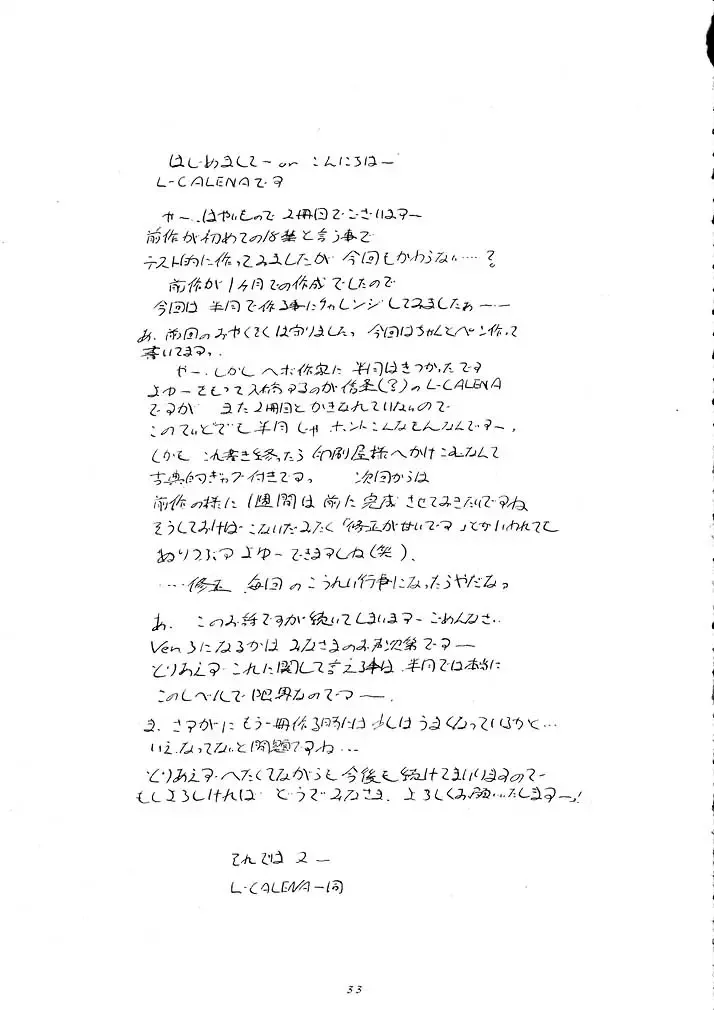 はじめましてー or こんにちはー
L-CALENAです
やー、はやいもので 2冊目でございますー
前作が初めての18禁と言う事で
テスト的に作ってみましたが 今回もかわらない……?
前作が1ヶ月での作成でしたので
今回は 半月で作る事にチャレンジしてみましたぁーー
あ、前回のみやくそくは守りました。今回はちゃんとペン作って
書いてます。
やー、しかし ヘボ作家に 半月はきつかったです
よゆーをもって入稿するのが信条(?)のL-CALENA
ですが まだ2冊目とかきなれていないので
このていどでも半月じゃ ホントこんなもんなんですー、
しかも これ書き終ったら 印刷屋様へかけこむなんて
古典的ギャグ付きです。 次回からは
前作の様に 1週間は前に完成させておきたいですね
そうしておけば こないだみたく「修正が甘いです」とかいわれても
ぬりつぶす よゆーできますしね(笑)、
……修正 毎回のこうれい行事になったらやだな。
あ、 このお話ですが続いてしまいますー ごめんなさい
Ver 3になるかは みなさまのお声次第ですー
とりあえず これに関して言える事は 半月では本当に
このレベルで限界なのですー。
ま、さすがに もう一冊作る頃には少しはうまくなっているかと…
いえ、なってないと問題ですね…
とりあえず へたくてながらも 今後も続けてまいりますのでー
もしよろしければ どうぞみなさま、よろしくお願いいたしますー!
それでは 2ー
L-CALENA一同
33